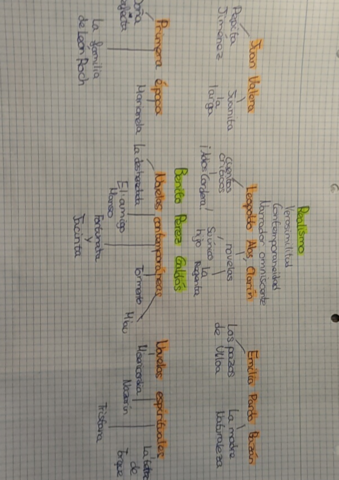 Realismo
Verosimilitud
Contemporaneidad
Narrador omnisciente
Juan Valera
Pepita
Jiménez
Juanita
la
larga
Leopoldo Alas Clarín
cuentos
¡Adiós Cordera!
novelas
Su único
hijo
La
Regenta
Emilia Pardo Bazán
Los pazos
de
Ulloa
La madre
Naturaleza
Benito Pérez Galdós
Primera época
Doña
Perfecta
La familia
de León Roch
Marianela
Novelas contemporáneas
La desheredada
El amigo
Manso
Fortunata
y
Jacinta
Tormento
Miau
Novelas espirituales
Misericordia
Nazarín
Tristana
de